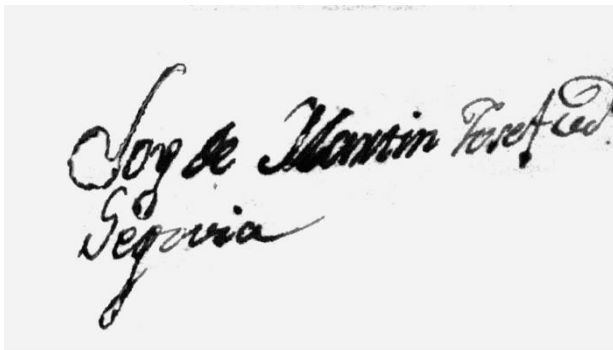 Soy de Martin Josef
Segovia